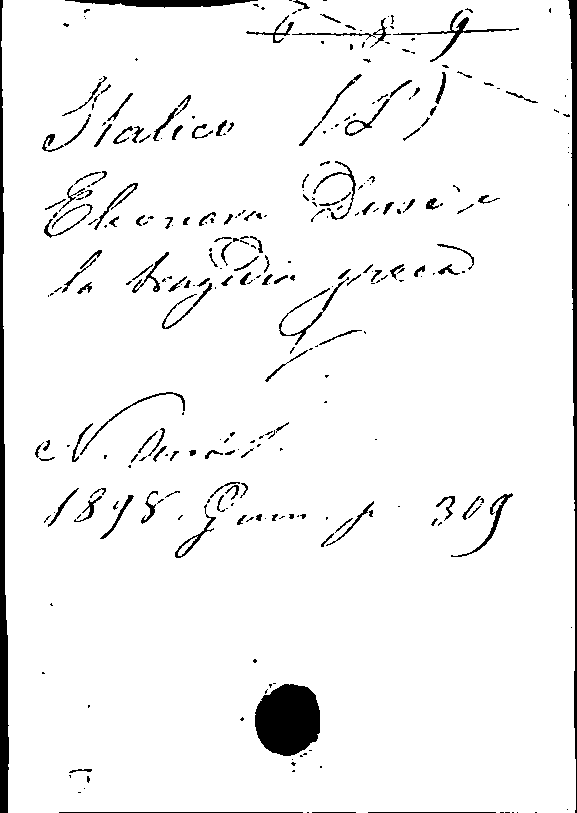 6. 8. 9
Italico (L')
Eleonora Duse e
la tragedia greca
N.
1898. Genn. p. 309